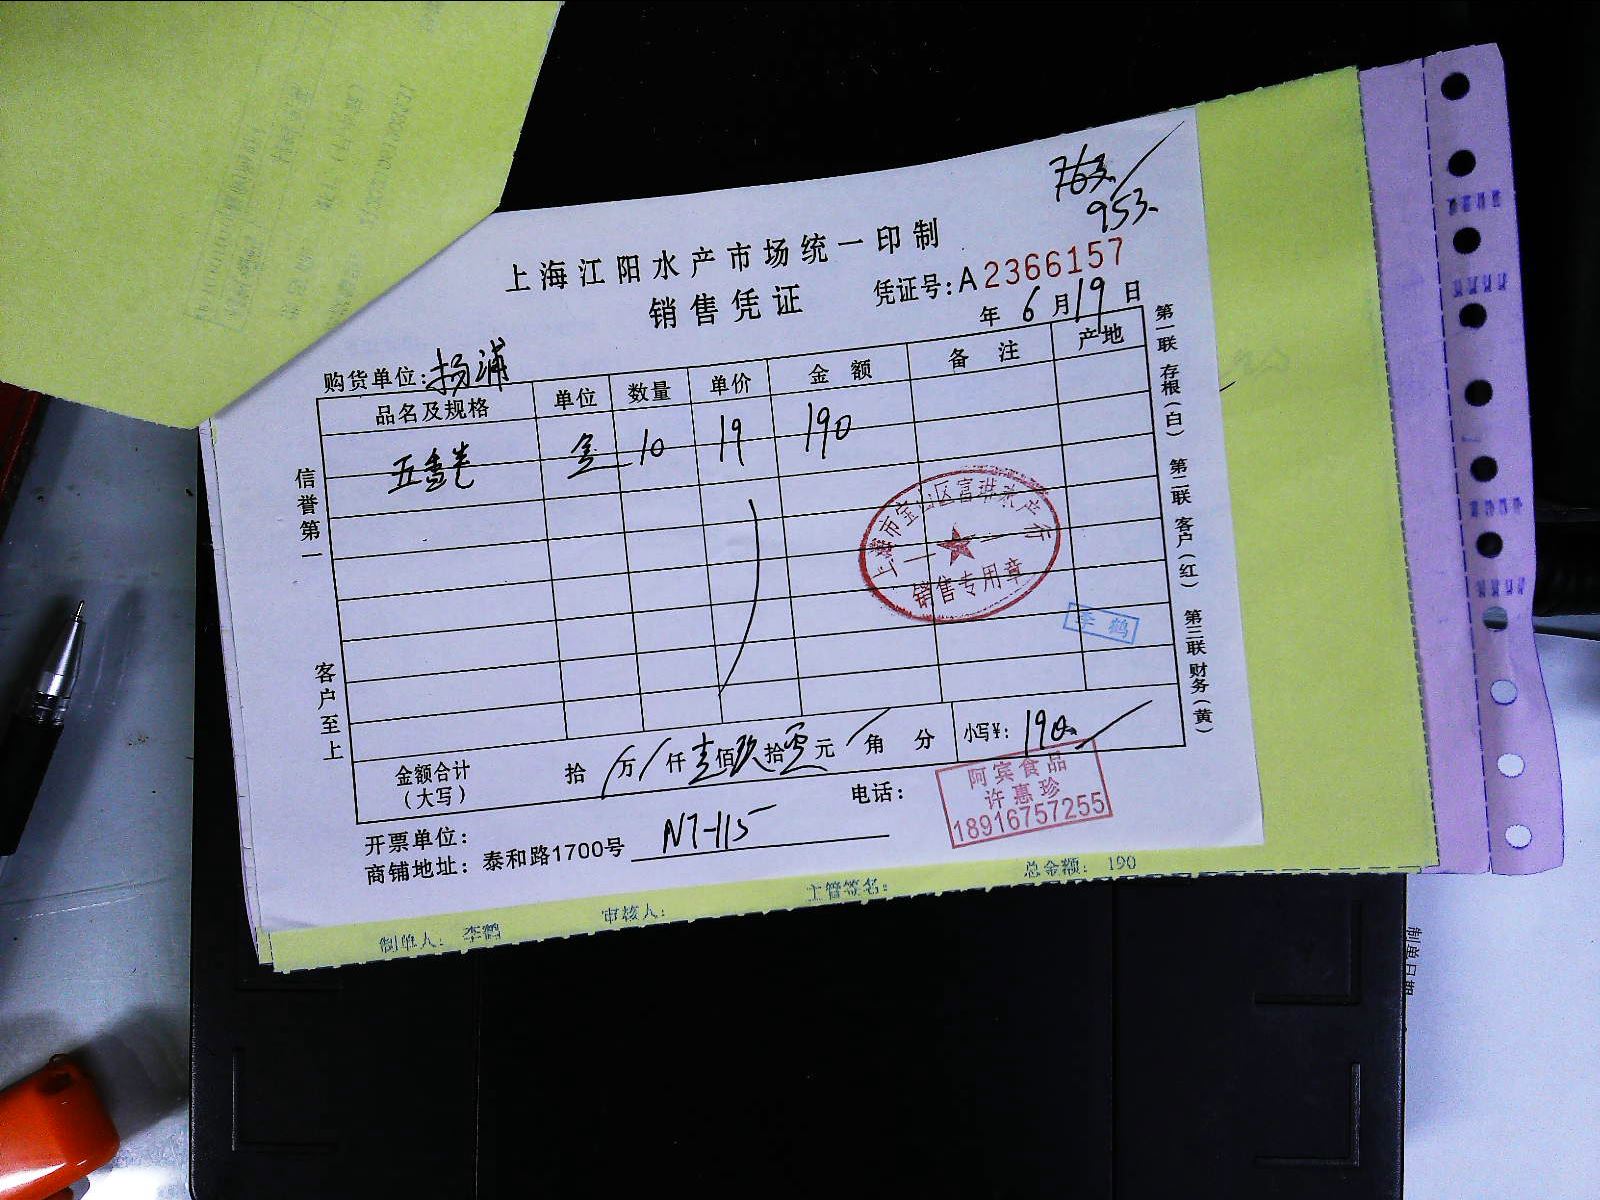 763.
953.
上海江阳水产市场统一印制
销售凭证
凭证号:A2366157
年 6 月 19 日
购货单位:杨浦
品名及规格 单位 数量 单价 金额 备注 产地
10 19 190
信誉第一
客户至上
第一联 存根(白) 第二联 客户(红) 第三联 财务(黄)
上海市宝山区富琳水产行
销售专用章
李鹤
金额合计(大写) 拾 万 仟 壹佰玖拾零元 角 分 小写¥: 190.
开票单位:
电话:
阿宾食品
许惠珍
18916757255
商铺地址: 泰和路1700号 N7-115
制单人: 李鹤 审核人: 主管签名: 总金额: 190
制单日期